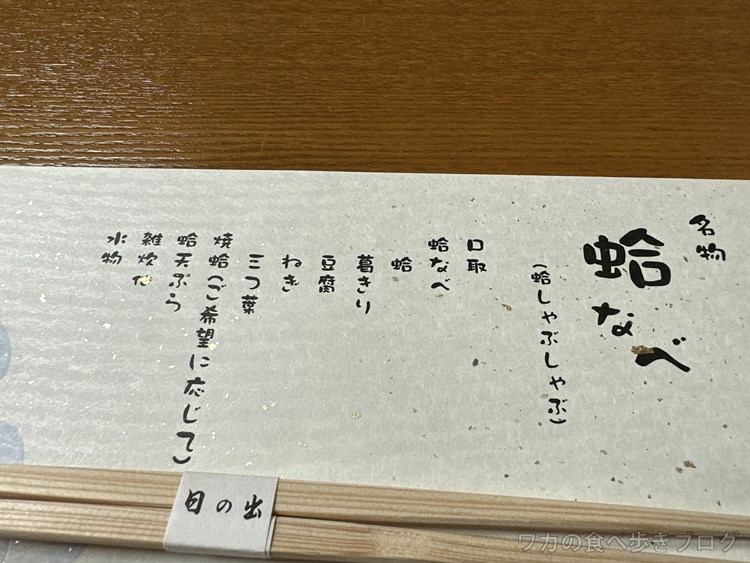 名物
蛤なべ
(蛤しゃぶしゃぶ)
口取
蛤なべ
蛤
葛きり
豆腐
ねぎ
三つ葉
焼蛤(ご希望に応じて)
蛤天ぷら
雑炊
水物
日の出
ワカの食べ歩きブログ